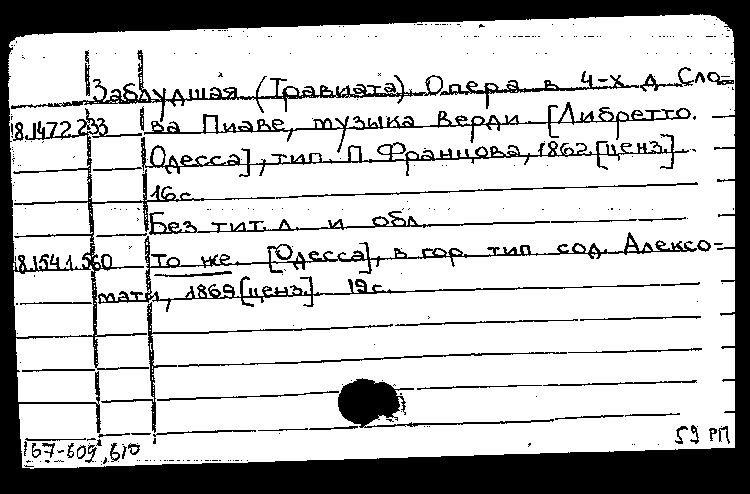 Заблудшая (Травиата). Опера в 4-х д. Сло=
18.147.2.233 ва Пиаве, музыка Верди. [Либретто.
Одесса], тип. П. Францова, 1862 [ценз.].
16 с.
Без тит. л. и обл.
18.154.1.560 То же. [Одесса], в гор. тип. сод. Алексо=
мати, 1869 [ценз.]. 19 с.
167-609, 610
59 РП